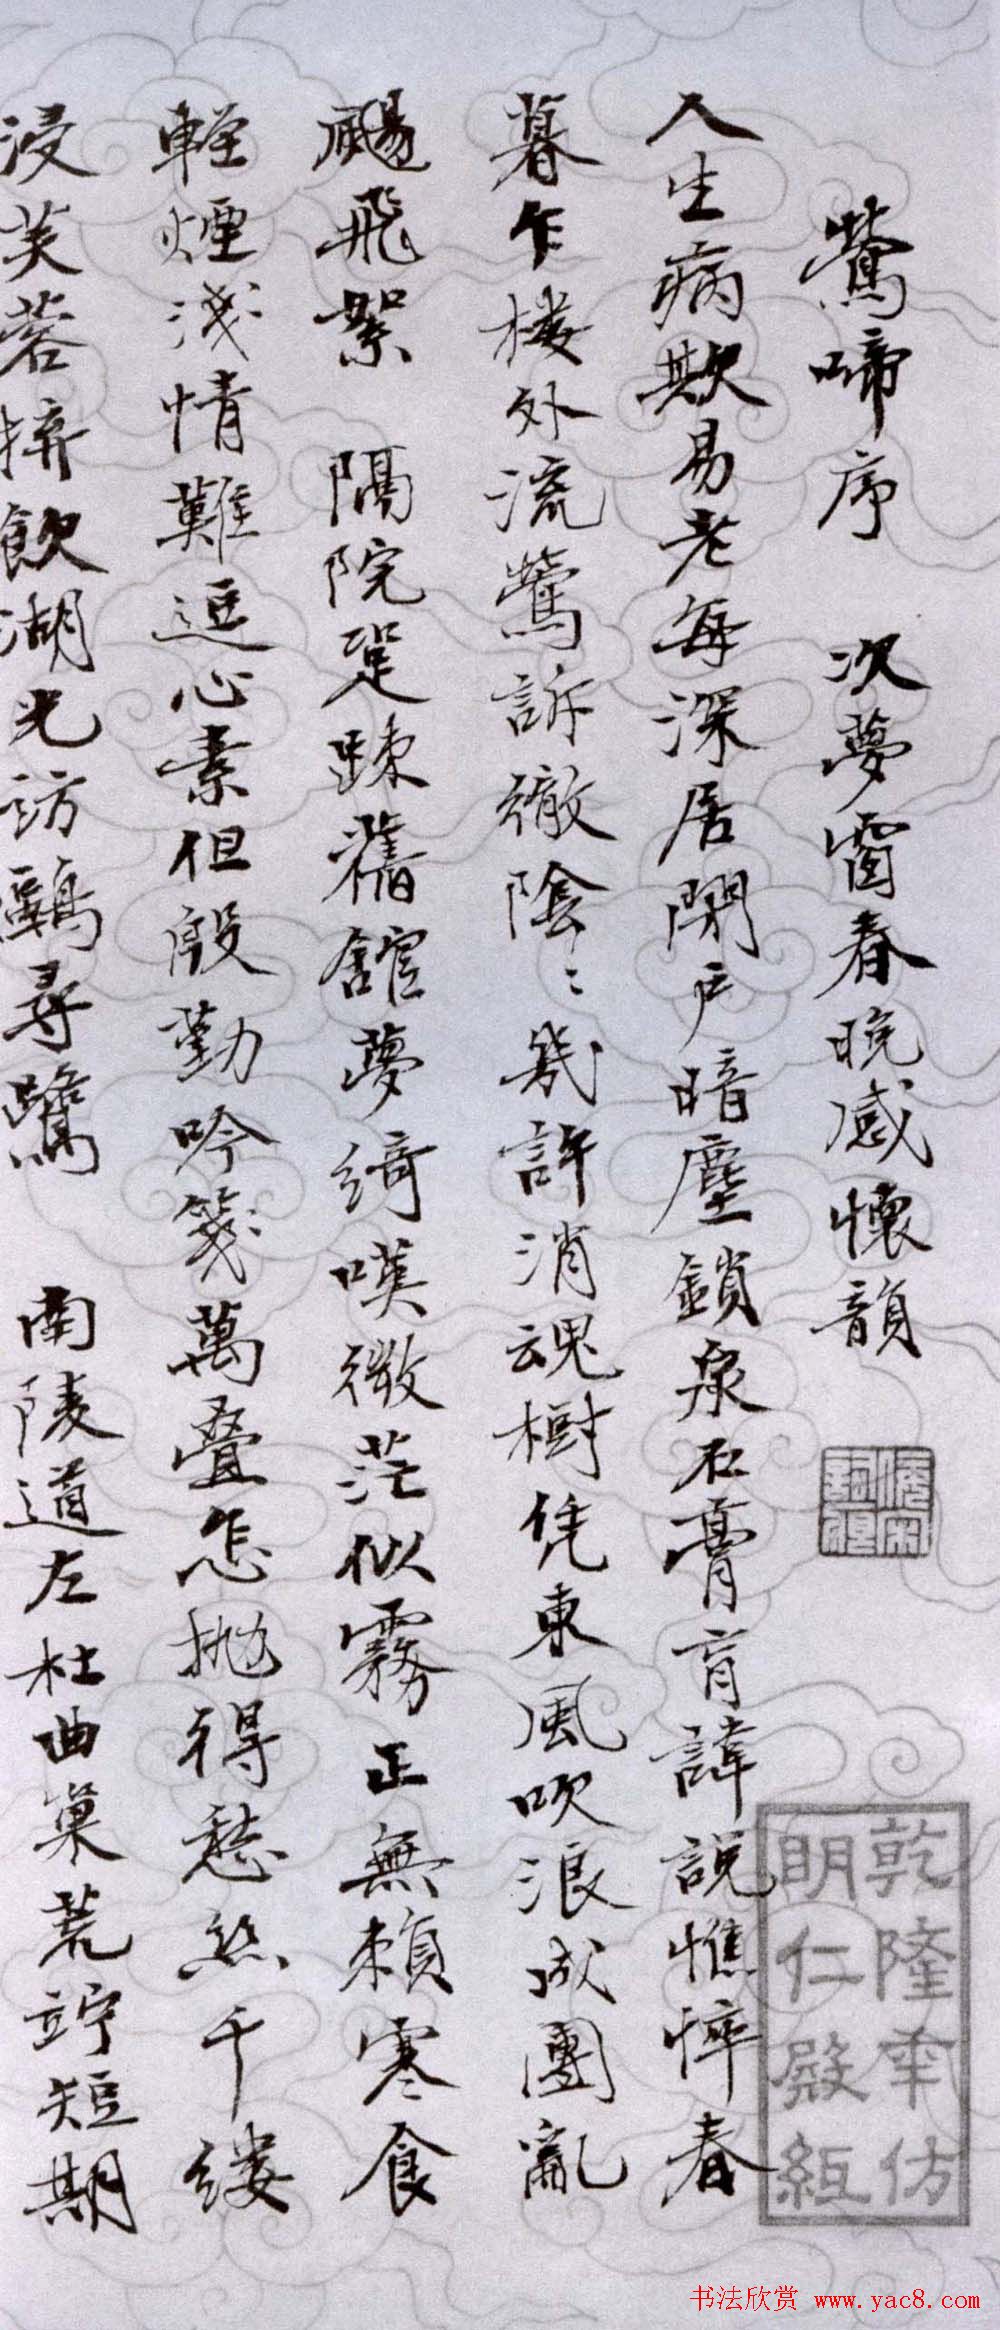 鶯啼序 次夢窗春晚感懷韻
人生病欺易老每深居閉戶暗塵鎖泉石膏肓諱說憔悴春
暮乍楼外流鶯訴徹陰〻幾許消魂樹凭東風吹浪成團亂
飏飛絮 隔院踅踈舊館夢綺嘆微茫似霧正無賴寒食
輕煙淺情難逗心素但殷勤吟箋萬叠怎抛得愁絲千缕
浸芙蓉擠飲湖光訪鷗尋鷺 南陵道左杜曲巢荒竚短期
乾隆年仿
明仁殿紙
书法欣赏 www.yac8.com